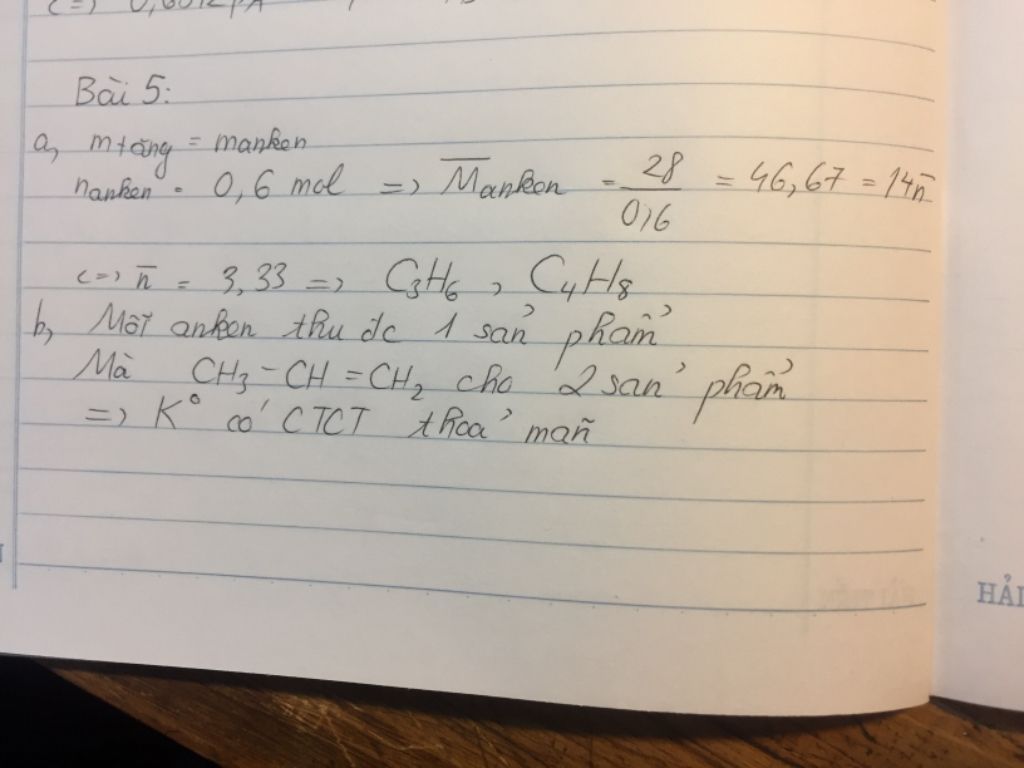 Bài 5:
a, m tăng = manken
nanken = 0,6 mol => M̅anken = 28/0,6 = 46,67 = 14n̅
<=> n̅ = 3,33 => C3H6, C4H8
b, Mỗi anken thu đc 1 sản phẩm
Mà CH3-CH=CH2 cho 2 sản phẩm
=> K° có CTCT thoả mãn
HẢI